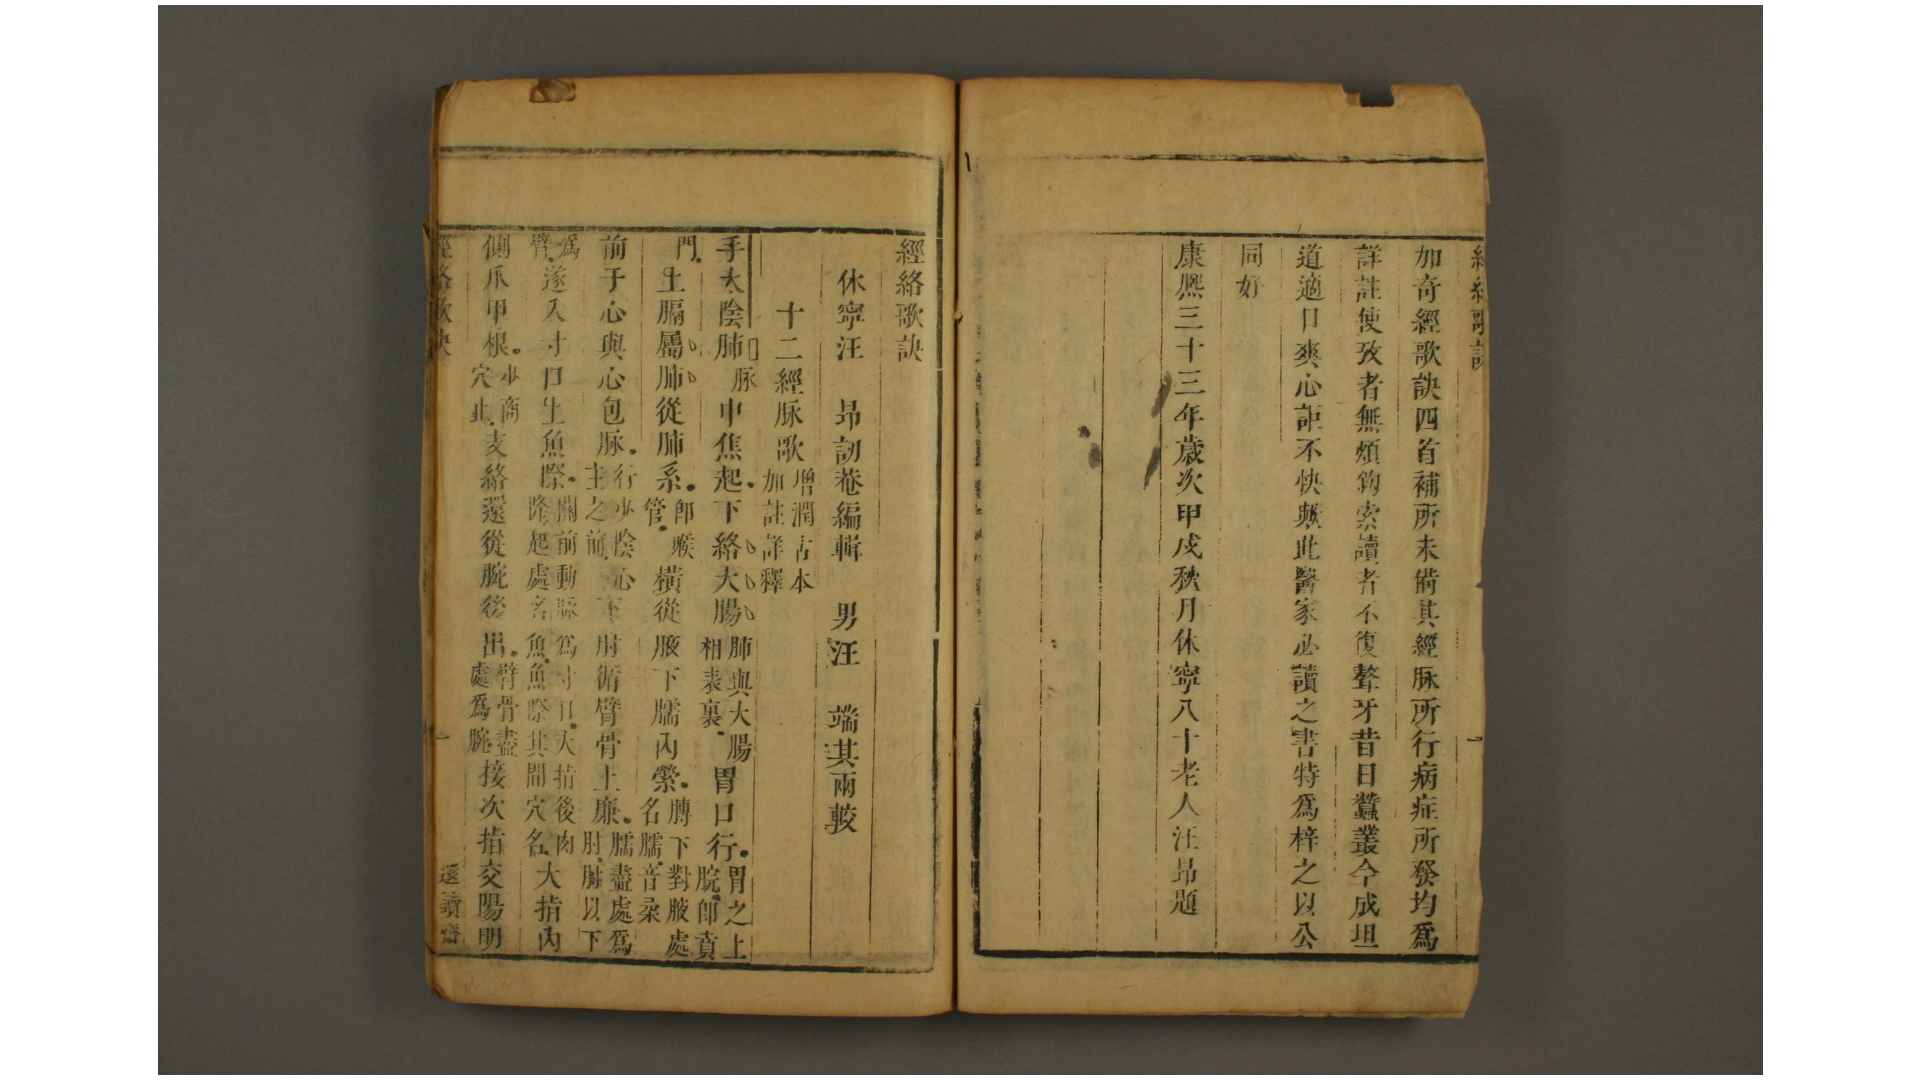 加奇經歌訣四首補所未備其經脉所行病症所發均爲
詳註使攷者無煩鈎索讀者不復聱牙昔日蠶叢今成坦
道適口爽心詎不快歟此醫家必讀之書特爲梓之以公
同好
康熈三十三年歲次甲戌秋月休寧八十老人汪昂題
經絡歌訣
休寧汪 昂訒菴編輯 男汪 端其兩較
十二經脉歌 增潤古本 加註詳釋
手太陰肺脉中焦起下絡大腸肺與大腸相表裏胃口行胃之上脘即賁
門上膈屬肺從肺系即喉管橫從腋下臑內縈膊下對腋處名臑音柔
前于心與心包脉行少陰心主之前下肘循臂骨上廉臑盡處爲肘肘以下
爲臂遂入寸口上魚際關前動脉爲寸口大指後肉隆起處名魚魚際其間穴名大指內
側爪甲根少商穴止支絡還從腕後出臂骨盡處爲腕接次指交陽明
經絡歌訣
一
還讀齋